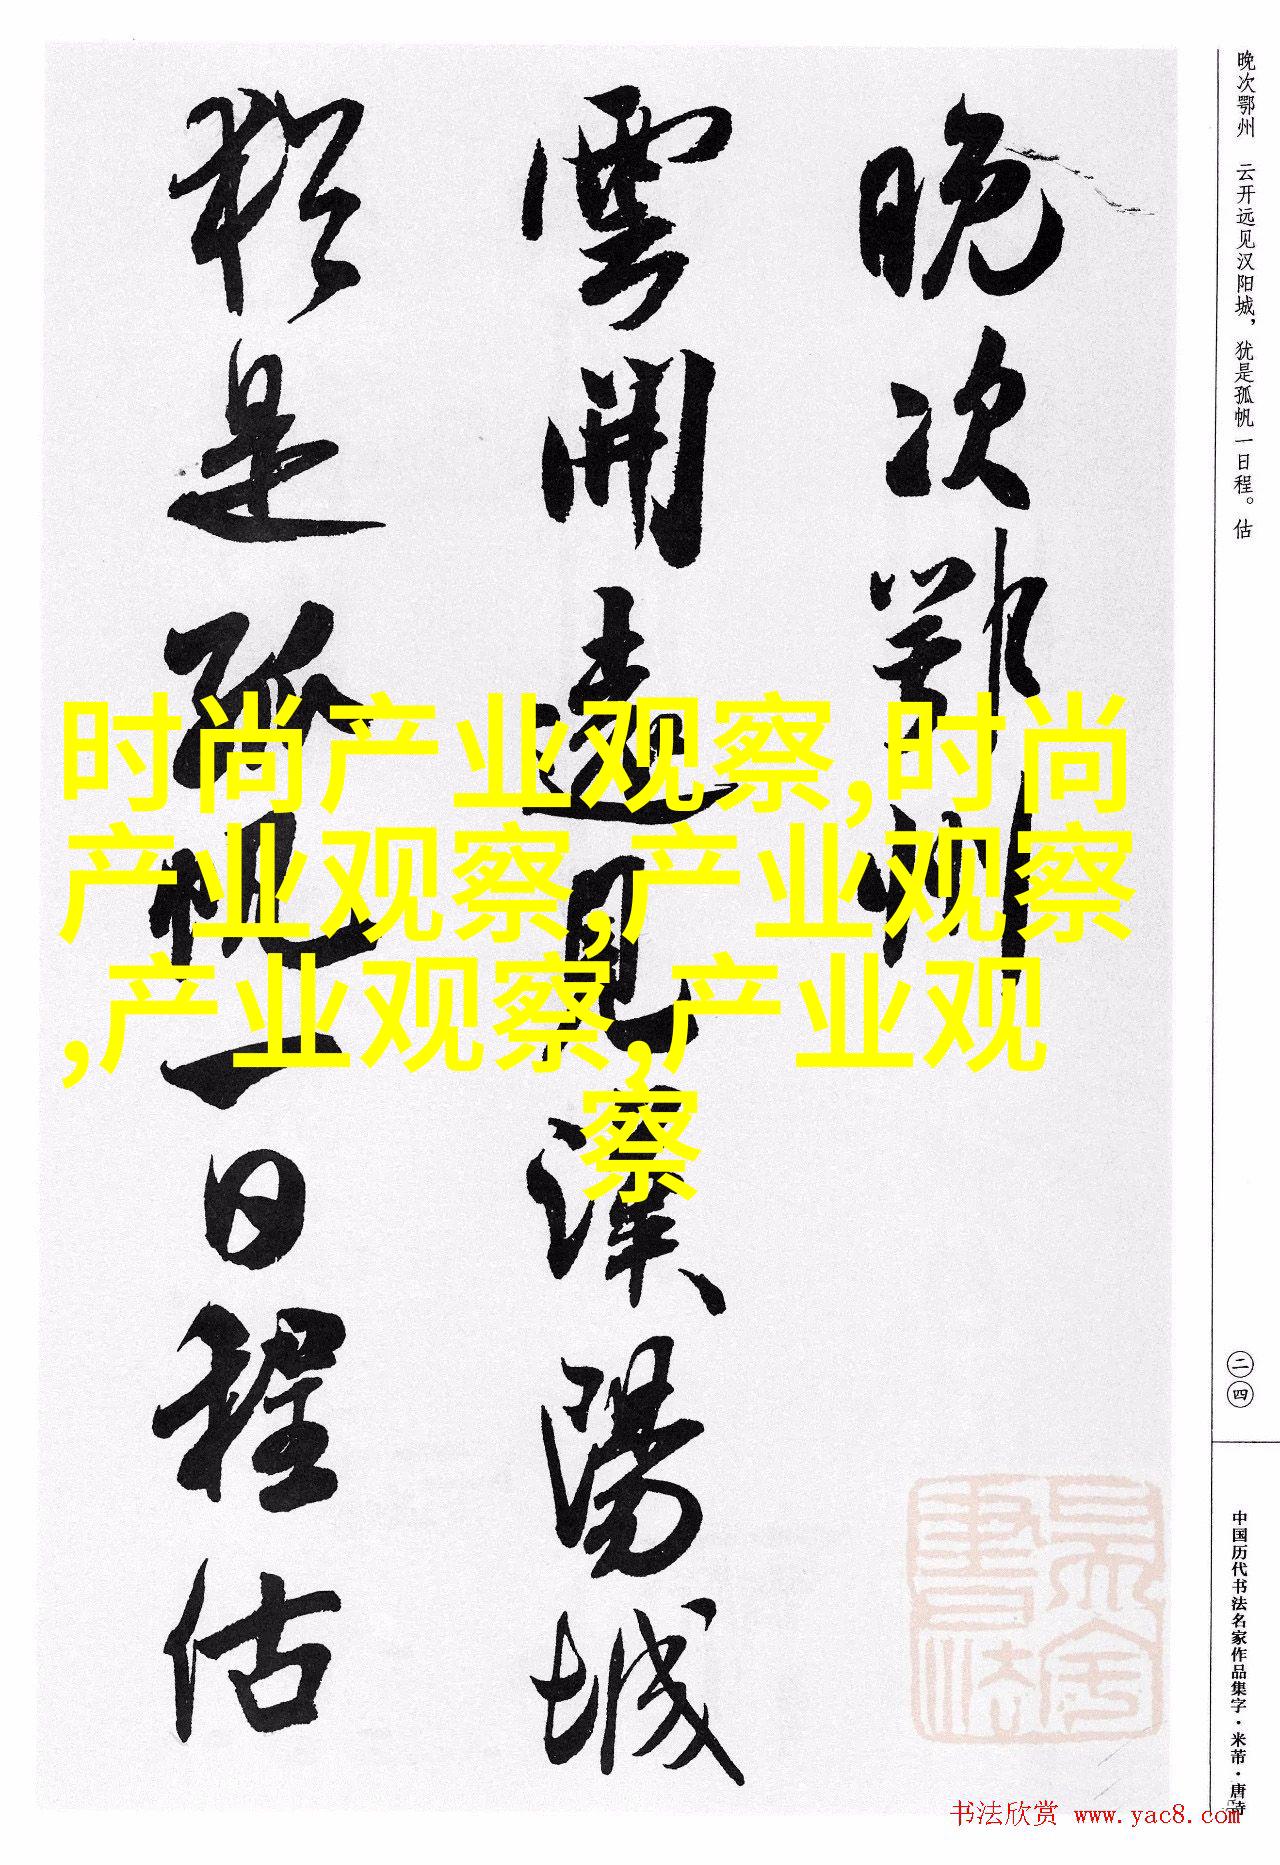 晚次鄂州
雲開遠見漢陽城
猶是孤帆一日程估
时尚产业观察,时尚
产业观察,产业观察
,产业观察,产业观
察
晚次鄂州 云开远见汉阳城，犹是孤帆一日程。估
二四
中国历代书法名家作品集字·米芾·唐诗
书法欣赏 www.yac8.com